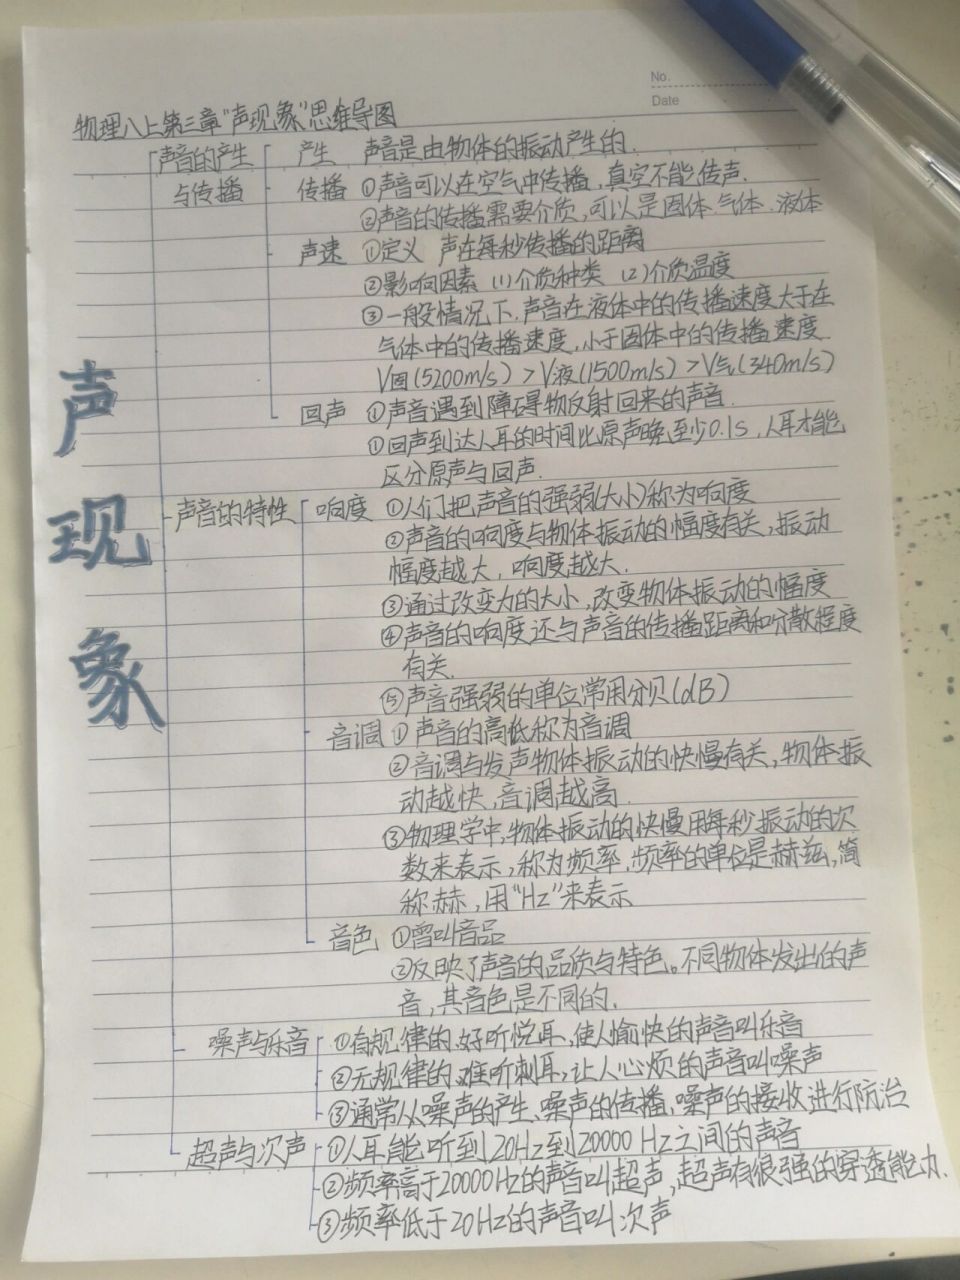 No.
Date
物理八上第三章"声现象"思维导图
声音的产生 产生 声音是由物体的振动产生的.
与传播 传播 ①声音可以在空气中传播,真空不能传声.
②声音的传播需要介质,可以是固体.气体.液体
声速 ①定义 声在每秒传播的距离
②影响因素 (1)介质种类 (2)介质温度
③一般情况下.声音在液体中的传播速度大于在
气体中的传播速度,小于固体中的传播速度
V固(5200m/s)>V液(1500m/s)>V气(340m/s)
回声 ①声音遇到障碍物反射回来的声音.
①回声到达人耳的时间比原声晚至少0.1s,人耳才能
区分原声与回声.
声现象
声音的特性 响度 ①人们把声音的强弱(大小)称为响度
②声音的响度与物体振动的幅度有关,振动
幅度越大,响度越大.
③通过改变力的大小,改变物体振动的幅度
④声音的响度还与声音的传播距离和分散程度
有关.
⑤声音强弱的单位常用分贝(dB)
音调 ①声音的高低称为音调
②音调与发声物体振动的快慢有关,物体振
动越快,音调越高.
③物理学中,物体振动的快慢用每秒振动的次
数来表示,称为频率.频率的单位是赫兹,简
称赫,用"Hz"来表示
音色 ①曾叫音品
②反映了声音的品质与特色。不同物体发出的声
音,其音色是不同的.
噪声与乐音 ①有规律的.好听悦耳,使人愉快的声音叫乐音
②无规律的.难听刺耳,让人心烦的声音叫噪声
③通常从噪声的产生.噪声的传播,噪声的接收进行防治
超声与次声 ①人耳能听到20Hz到20000Hz之间的声音
②频率高于20000Hz的声音叫超声,超声有很强的穿透能力.
③频率低于20Hz的声音叫次声